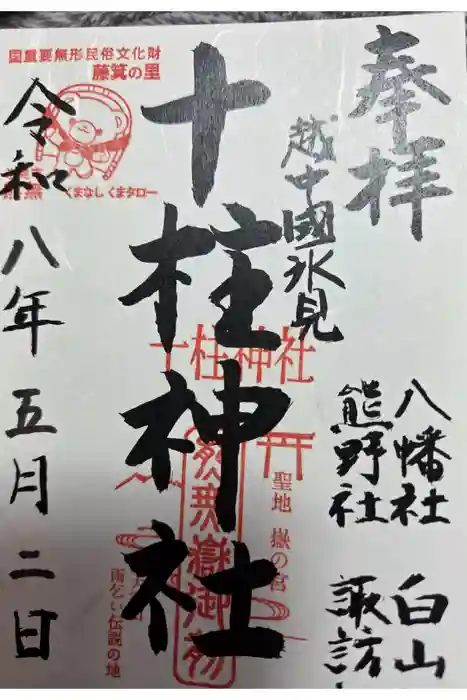 奉拝
八幡社 白山
熊野社 諏訪
越中國氷見
十柱神社
国重要無形民俗文化財
藤箕の里
くまなし くまタロー
十柱神社
聖地 嶽の宮
雨乞い伝説の地
令和八年五月二日